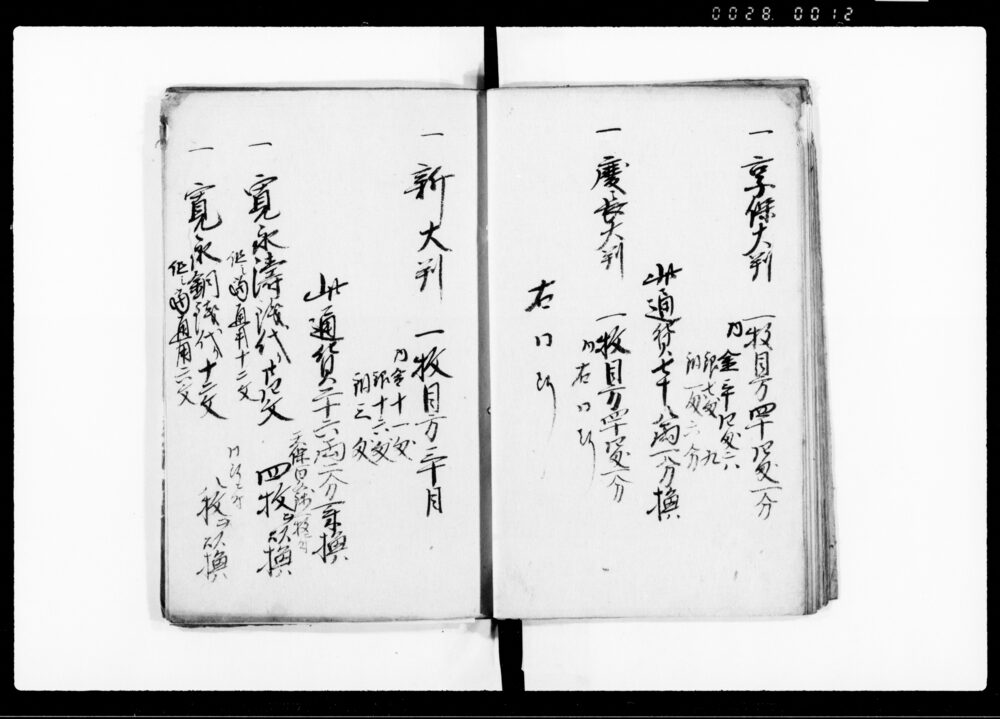 0028.0012
一 享保大判 一枚目方四十四匁一分
内 金三十四匁六
銀七匁九
銅一匁六分
此通貨七十八両一分換
一 慶長大判 一枚目方四十四匁一分
内右同断
右同断
一 新大判 一枚目方三十目
内金十一匁
銀十六匁
銅三匁
此通貨二十六両二分一朱換
天保百銭一枚
一 寛永濤銭代り廿四文 四枚ヲ以換
但シ當通用十二文
一 寛永銅銭代り十二文 八枚ヲ以換
但シ當通用六文